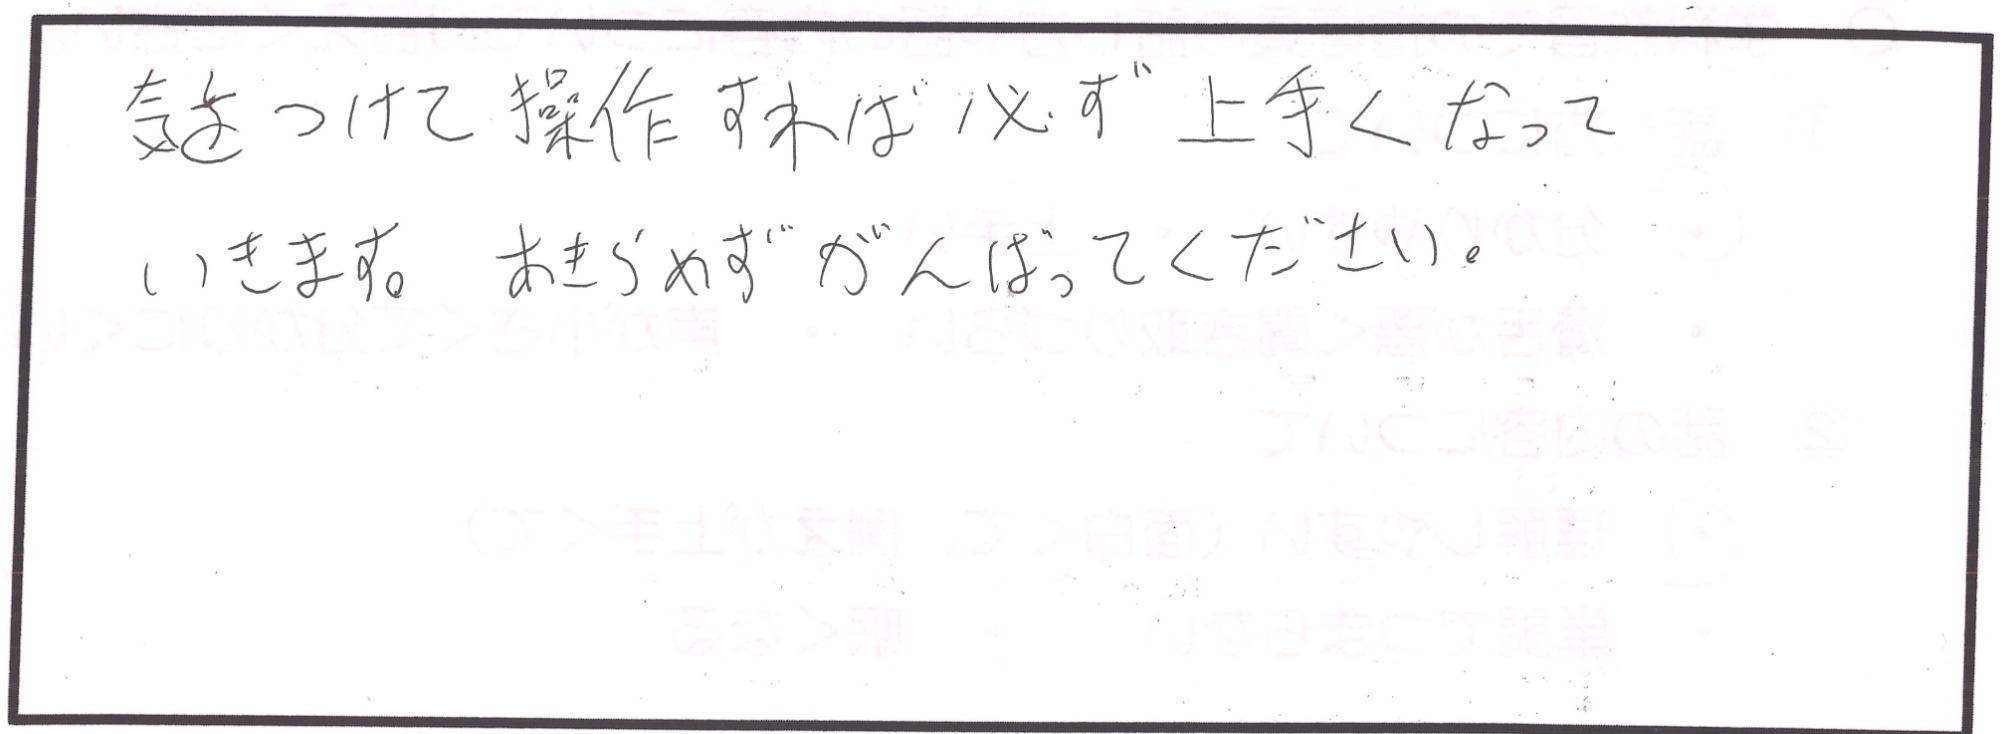 気をつけて操作すれば必ず上手くなって
いきます。あきらめずがんばってください。